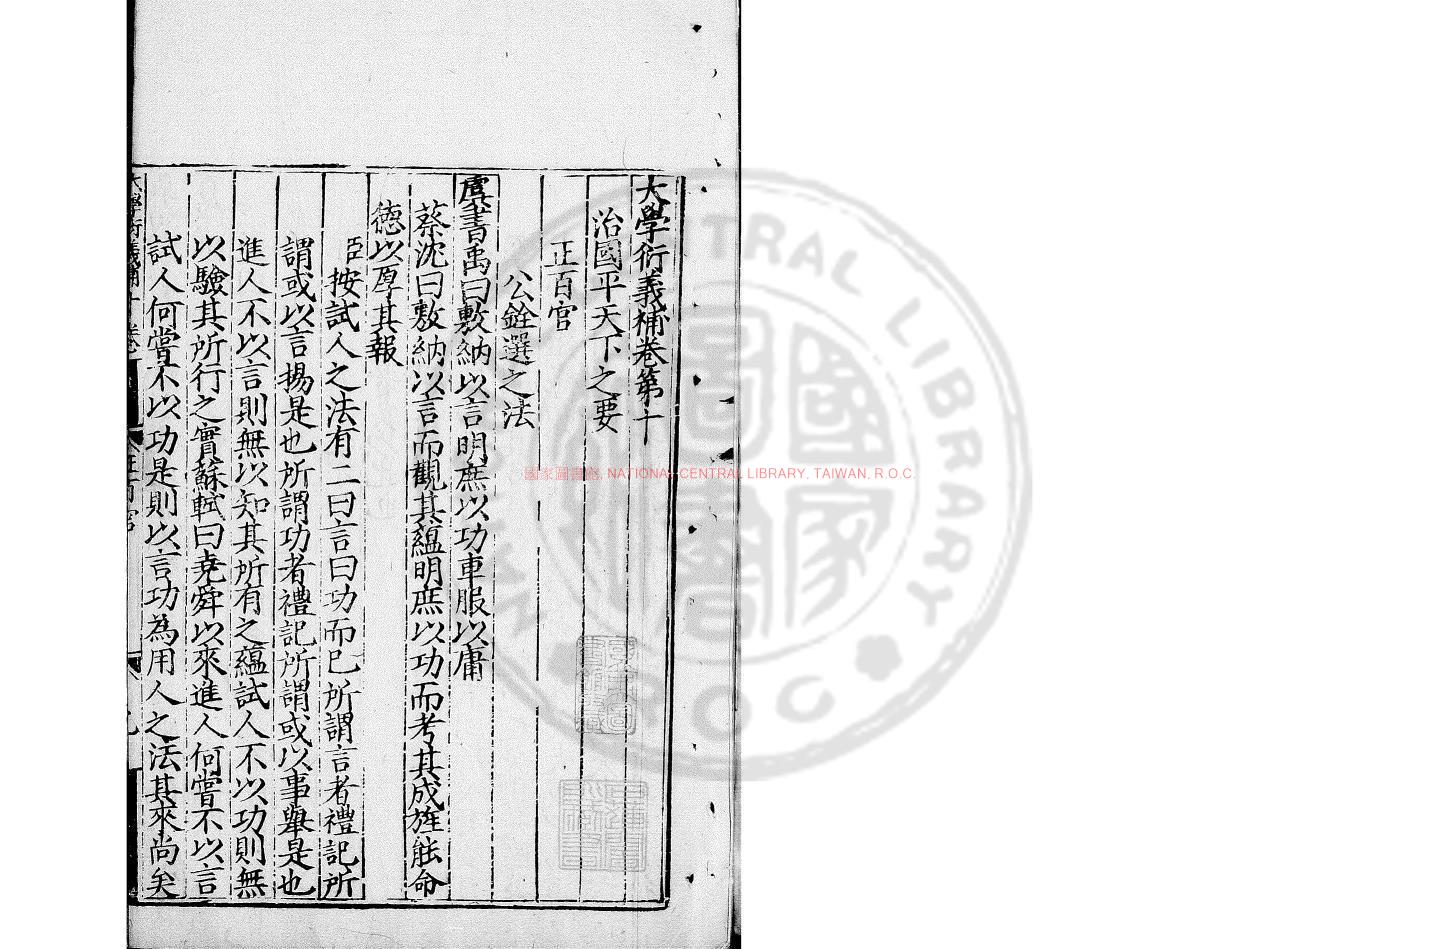 大學衍義補卷第十
治國平天下之要
正百官
公銓選之法
虞書禹曰敷納以言明庶以功車服以庸
蔡沈曰敷納以言而觀其蘊明庶以功而考其成旌能命
德以厚其報
臣按試人之法有二曰言曰功而已所謂言者禮記所
謂或以言揚是也所謂功者禮記所謂或以事舉是也
進人不以言則無以知其所有之蘊試人不以功則無
以驗其所行之實蘇軾曰堯舜以來進人何嘗不以言
試人何嘗不以功是則以言功為用人之法其來尚矣
國家圖書館, NATIONAL CENTRAL LIBRARY, TAIWAN, R.O.C.